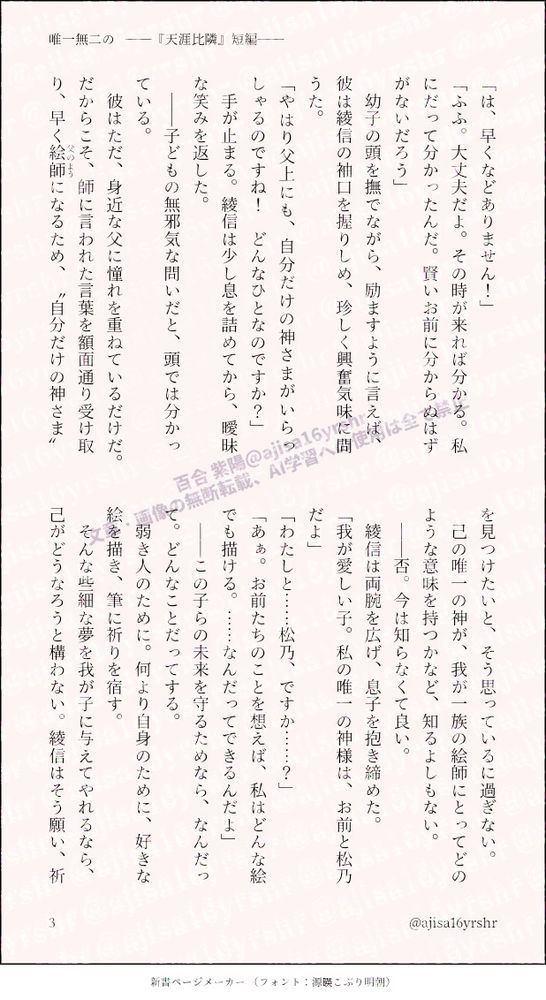 唯一無二の ――『天涯比隣』短編――
「は、早くなどありません！」
「ふふ。大丈夫だよ。その時が来れば分かる。私
にだって分かったんだ。賢いお前に分からぬはず
がないだろう」
　幼子の頭を撫でながら、励ますように言えば、
彼は綾信の袖口を握りしめ、珍しく興奮気味に問
うた。
「やはり父上にも、自分だけの神さまがいらっ
しゃるのですね！　どんなひとなのですか？」
　手が止まる。綾信は少し息を詰めてから、曖昧
な笑みを返した。
　――子どもの無邪気な問いだと、頭では分かっ
ている。
　彼はただ、身近な父に憧れを重ねているだけだ。
だからこそ、師に言われた言葉を額面通り受け取
り、早く絵師になるため、〝自分だけの神さま〟
父のよう
を見つけたいと、そう思っているに過ぎない。
　己の唯一の神が、我が一族の絵師にとってどの
ような意味を持つかなど、知るよしもない。
　――否。今は知らなくて良い。
　綾信は両腕を広げ、息子を抱き締めた。
「我が愛しい子。私の唯一の神様は、お前と松乃
だよ」
「わたしと……松乃、ですか……？」
「あぁ。お前たちのことを想えば、私はどんな絵
でも描ける。……なんだってできるんだよ」
　――この子らの未来を守るためなら、なんだっ
て。どんなことだってする。
　弱き人のために。何より自身のために、好きな
絵を描き、筆に祈りを宿す。
　そんな些細な夢を我が子に与えてやれるなら、
己がどうなろうと構わない。綾信はそう願い、祈
百合 紫陽@ajisa16yrshr
文章・画像の無断転載、AI学習への使用は全て禁止
3
@ajisa16yrshr
新書ページメーカー （フォント：源暎こぶり明朝）